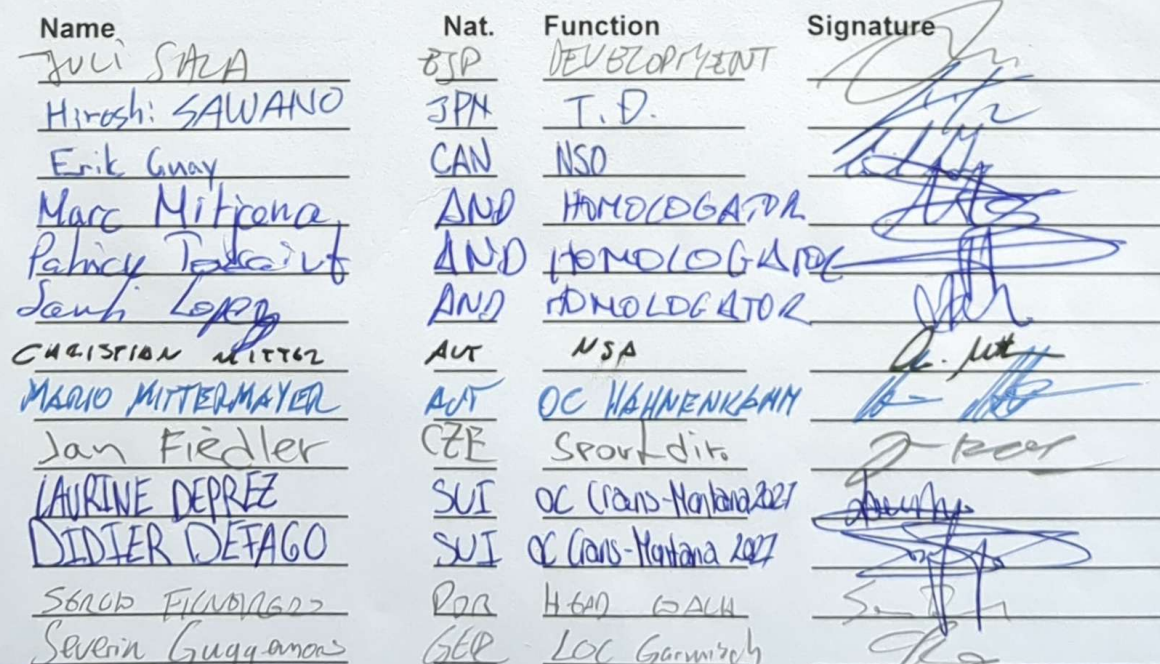 Name Nat. Function Signature
JULI SALA ESP DEVELOPMENT
Hiroshi SAWANO JPN T.D.
Erik Guay CAN NSO
Marc Mitjana AND HOMOLOGATOR
Patricy AND HOMOLOGATOR
Santi Lopez AND HOMOLOGATOR
CHRISTIAN MITTER AUT NSA
MARIO MITTERMAYER AUT OC HAHNENKAMM
Jan Fiedler CZE Sportdir.
LAURINE DEPREZ SUI OC Crans-Montana 2027
DIDIER DEFAGO SUI OC Crans-Montana 2027
SERGIO POR HEAD COACH
Severin GER LOC Garmisch